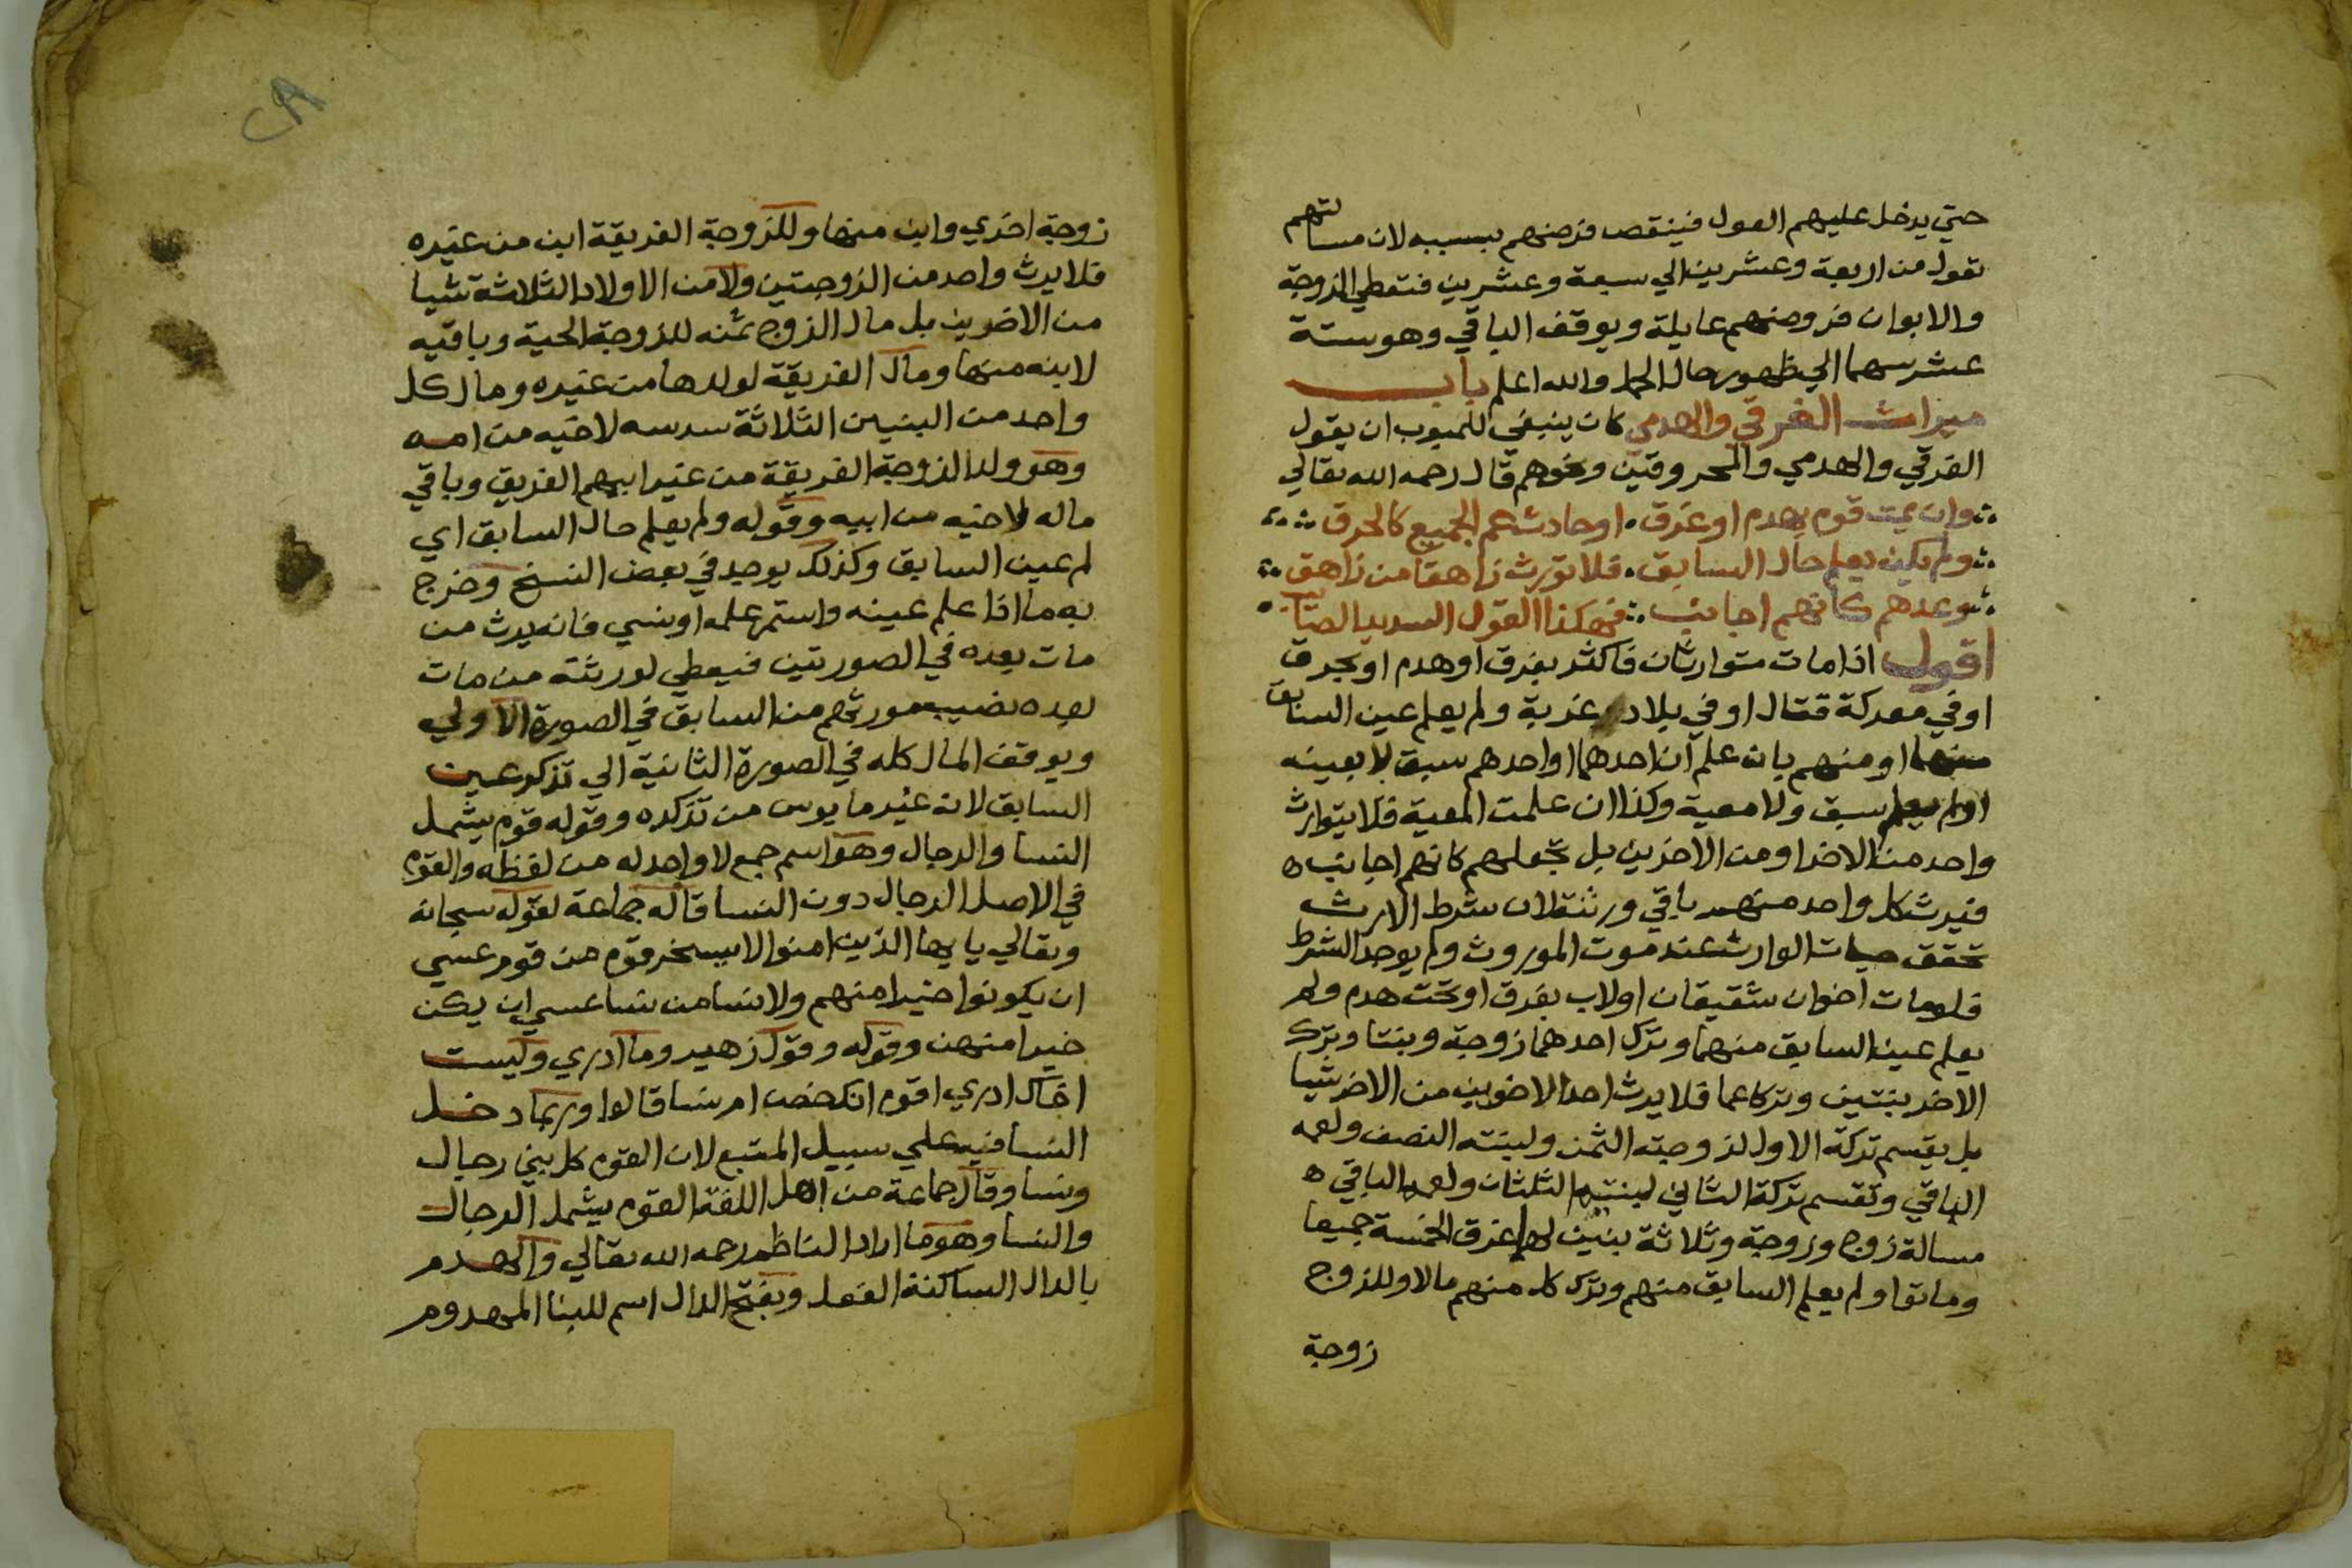 حتي يدخل عليهم العول فينقص فرضهم بسببه لان مسالتهم
تعول من اربعة وعشرين الي سبعة وعشرين فتعطي الزوجة
والابوان فروضهم عايلة ويوقف الباقي وهو ستة
عشر سهما الي ظهور حال الحمل والله اعلم باب
ميراث الغرقي والهدمي كان ينبغي للمبوب ان يقول
الغرقي والهدمي والمحروقين ونحوهم قال رحمه الله تعالي
وان يمت قوم بهدم او غرق او حادث عم الجميع كالحرق
ولم يكن يعلم حال السابق فلا تورث زاهقا من زاهق
وعدهم كانهم اجانب فهكذا القول السديد الصائب
اقول اذا مات متوارثان فاكثر بغرق او هدم او بحرق
او في معركة قتال او في بلاد غربة ولم يعلم عين السابق
منهما او منهم بان علم ان احدهما او احدهم سبق لا بعينه
او لم يعلم سبق ولا معية وكذا ان علمت المعية فلا يتوارث
واحد من الاخر او من الاخرين بل تجعلهم كانهم اجانب ه
فيرث كل واحد منهم باقي ورثته لان شرط الارث
تحقق حيات الوارث عند موت الموروث ولم يوجد الشرط
فلو مات اخوان شقيقان او لاب بغرق او تحت هدم ولم
يعلم عين السابق منهما وترك احدهما زوجة وبنتا وترك
الاخر بنتين وتركا عما فلا يرث احد الاخوين من الاخر شيا
بل يقسم تركة الاول لزوجته الثمن ولبنته النصف ولعمه
الباقي وتقسم تركة الثاني لبنتيه الثلثان ولعمه الباقي ه
مسالة زوج وزوجة وثلاثة بنين لهما غرق الخمسة جميعا
وماتوا ولم يعلم السابق منهم وترك كل منهم مالا وللزوج
زوجة
زوجة اخري وابن منها وللزوجة الغريقة ابن من غيره
فلا يرث واحد من الزوجتين ولا من الاولاد الثلاثة شيا
من الاخرين بل مال الزوج ثمنه للزوجة الحية وباقيه
لابنه منها ومال الغريقة لولدها من غيره ومال كل
واحد من البنين الثلاثة سدسه لاخيه من امه
وهو ولد الزوجة الغريقة من غير ابيهم الغريق وباقي
ماله لاخيه من ابيه وقوله ولم يعلم حال السابق اي
لم عين السابق وكذلك يوجد في بعض النسخ وخرج
به ما اذا علم عينه واستمر علمه او نسي فانه يرث من
مات بعده في الصورتين فيعطي لورثته من مات
بعده نصيب مورثهم من السابق في الصورة الاولي
ويوقف المال كله في الصورة الثانية الي تذكر عين
السابق لانه غير مايوس من تذكره وقوله قوم يشمل
النسا والرجال وهو اسم جمع لا واحد له من لفظه والقوم
في الاصل الرجال دون النسا قاله جماعة لقوله سبحانه
وتعالي يا يها الذين امنوا لا يسخر قوم من قوم عسي
ان يكونوا خيرا منهم ولا نسا من نسا عسي ان يكن
خيرا منهن وقوله وقول زهير وما ادري وليست
اخال ادري اقوم ال حصن ام نسا قالوا وربما دخل
النسا فيه علي سبيل المتبع لان القوم كل بني رجال
ونسا وقال جماعة من اهل اللغة القوم يشمل الرجال
والنسا وهو ما اراد الناظم رحمه الله تعالي والهدم
بالدال الساكنة الفعل وبفتح الدال اسم للبنا المهدوم